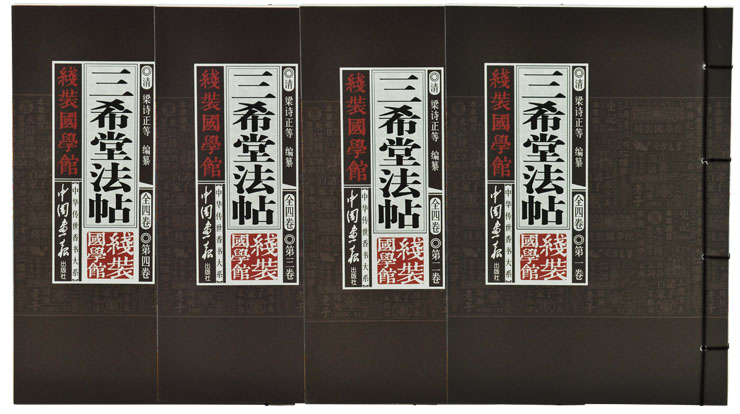 ◎清 梁诗正等 编纂
三希堂法帖
綫裝國學館
全四卷◎第一卷
中华传世香书大系
中国画报出版社
綫裝國學館
◎清 梁诗正等 编纂
三希堂法帖
綫裝國學館
全四卷◎第二卷
中华传世香书大系
中国画报出版社
綫裝國學館
◎清 梁诗正等 编纂
三希堂法帖
綫裝國學館
全四卷◎第三卷
中华传世香书大系
中国画报出版社
綫裝國學館
◎清 梁诗正等 编纂
三希堂法帖
綫裝國學館
全四卷◎第四卷
中华传世香书大系
中国画报出版社
綫裝國學館